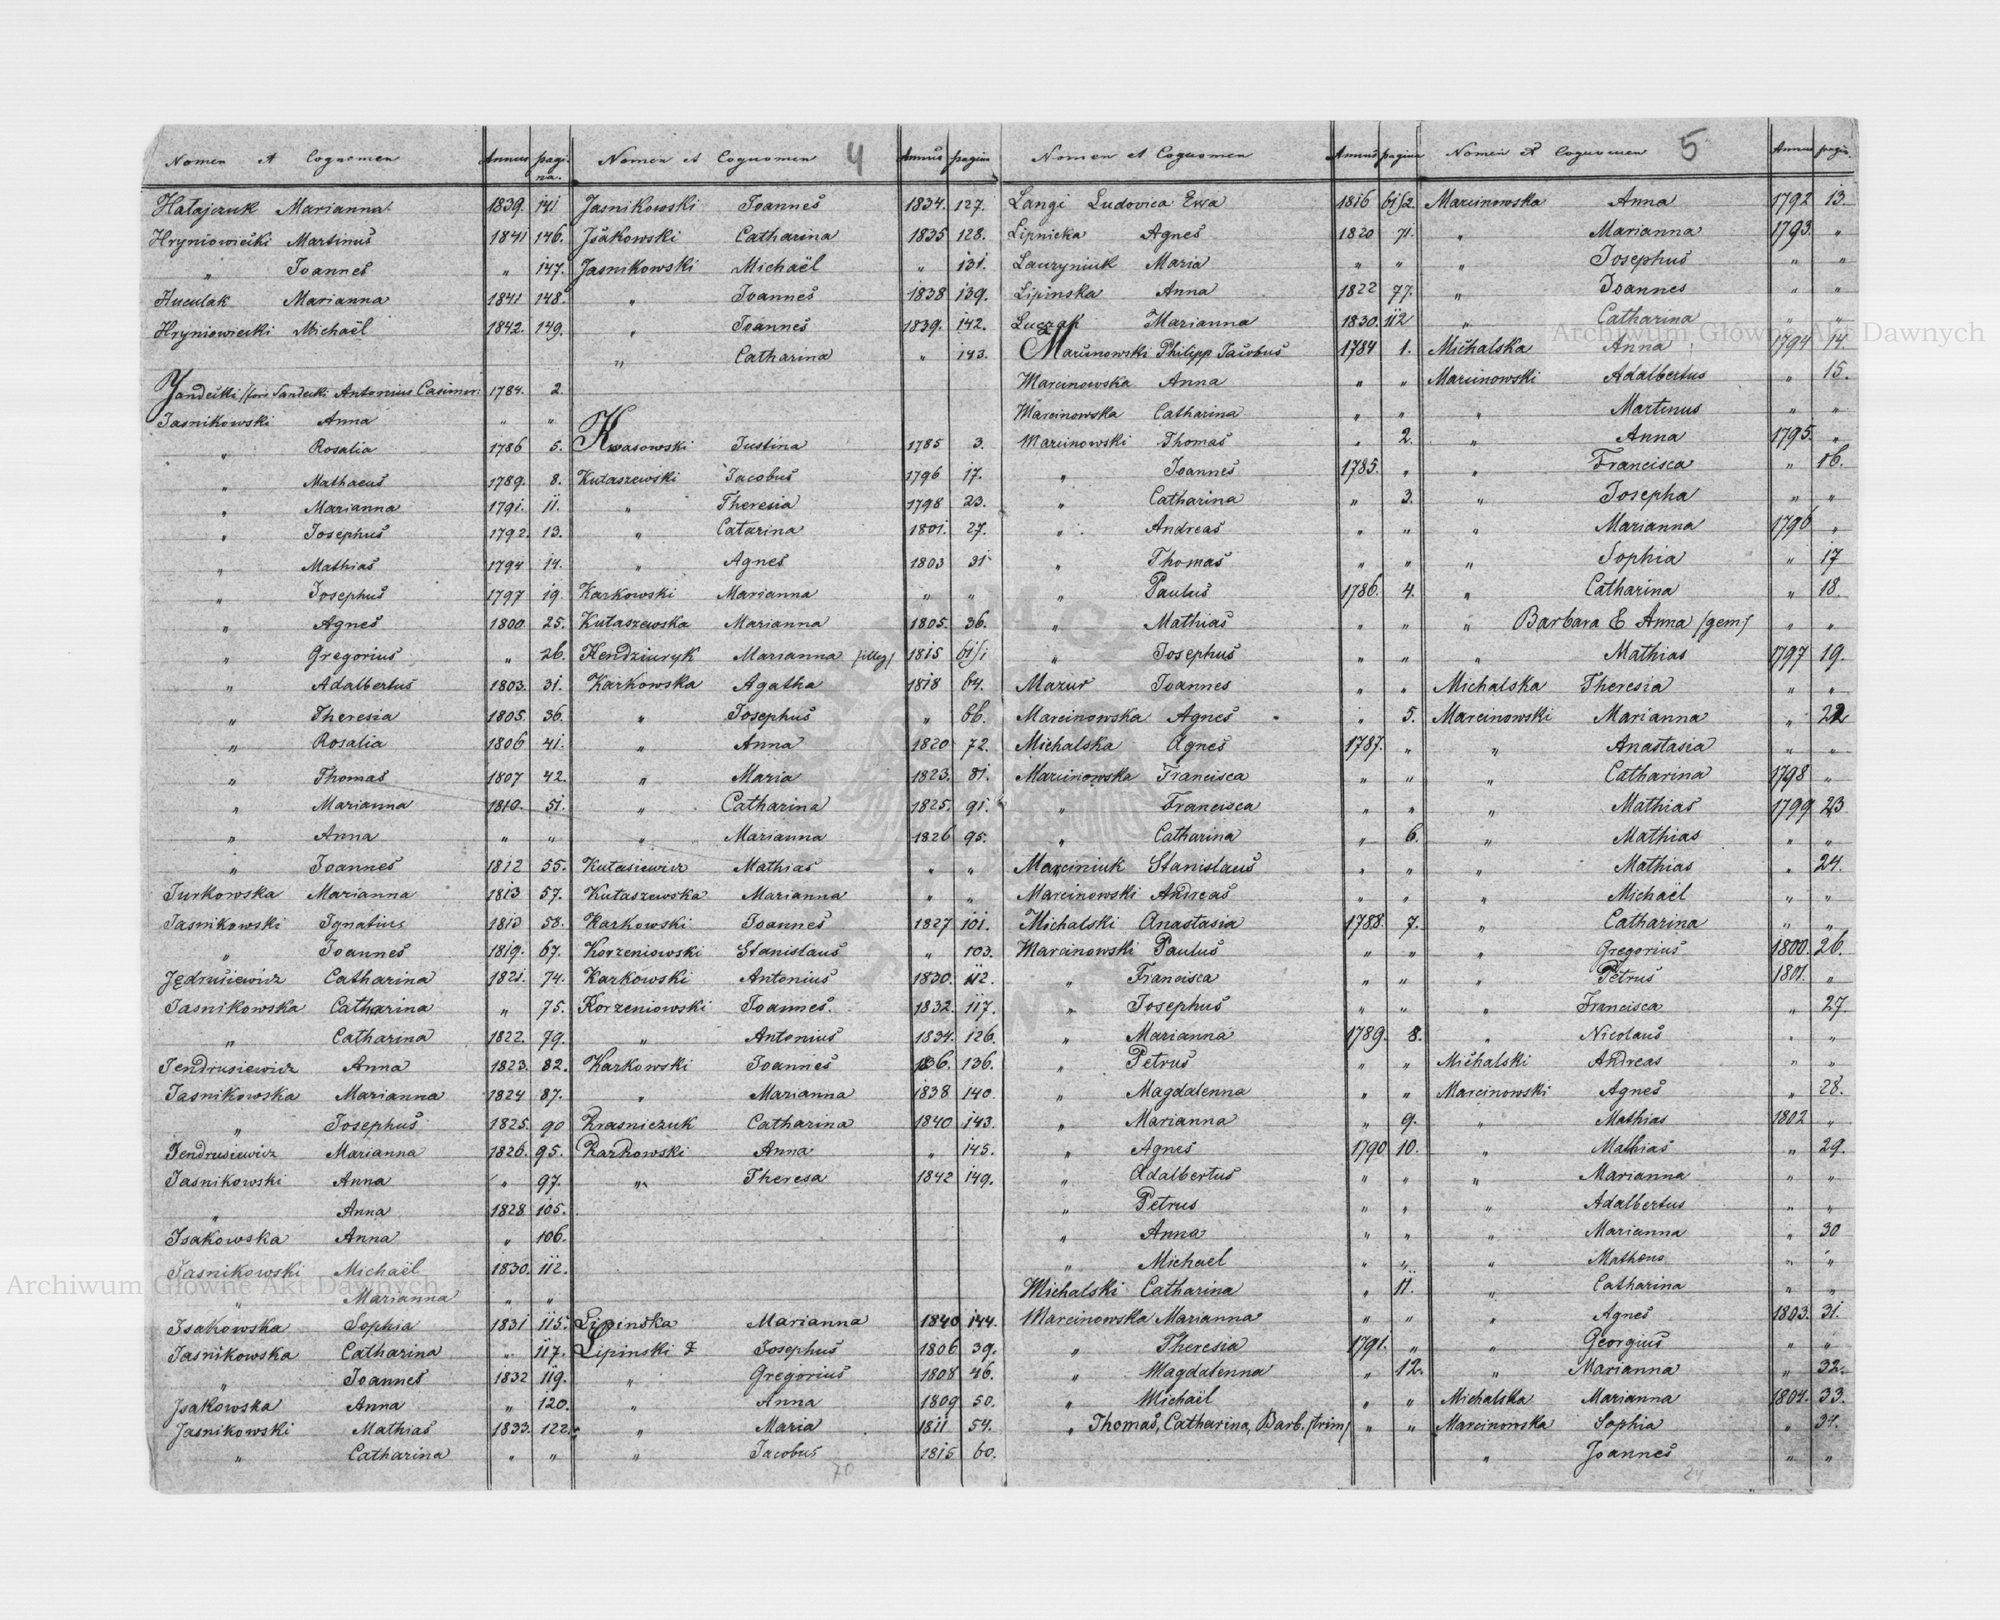 4
Nomen et Cognomen Annus pagina.
Hatajczuk Marianna 1839. 141
Hryniowiecki Martinus 1841 146.
„ Joannes „ 147.
Huculak Marianna 1841 148.
Hryniowiecki Michaël 1842. 149.
Jandecki /fors Sandecki Antonius Casimir. 1784. 2.
Jasnikowski Anna „ „
„ Rosalia 1786 5.
„ Mathaeus 1789. 8.
„ Marianna 1791. 11.
„ Josephus 1792. 13.
„ Mathias 1794 14.
„ Josephus 1797 19.
„ Agnes 1800. 25.
„ Gregorius „ 26.
„ Adalbertus 1803. 31.
„ Theresia 1805. 36.
„ Rosalia 1806 41.
„ Thomas 1807 42.
„ Marianna 1810. 51.
„ Anna „ „
„ Joannes 1812 55.
Jurkowska Marianna 1813 57.
Jasnikowski Ignatius 1813 58.
„ Joannes 1819. 67.
Jędrusiewicz Catharina 1821. 74.
Jasnikowska Catharina „ 75.
„ Catharina 1822. 79.
Jendrusiewicz Anna 1823. 82.
Jasnikowska Marianna 1824 87.
„ Josephus 1825. 90
Jendrusiewicz Marianna 1826. 95.
Jasnikowski Anna „ 97.
„ Anna 1828 105.
Isakowska Anna „ 106.
Jasnikowski Michaël 1830. 112.
„ Marianna „ „
Isakowska Sophia 1831 115.
Jasnikowska Catharina „ 117.
„ Joannes 1832 119.
Jsakowska Anna „ 120.
Jasnikowski Mathias 1833. 122.
„ Catharina „ „
Nomen et Cognomen Annus pagina
Jasnikowski Joannes 1834. 127.
Jsakowski Catharina 1835 128.
Jasnikowski Michaël „ 131.
„ Joannes 1838 139.
„ Joannes 1839. 142.
„ Catharina „ 143.
Kwasowski Justina 1785 3.
Kutaszewski Jacobus 1796 17.
„ Theresia 1798 23.
„ Catarina 1801. 27.
„ Agnes 1803 31
Karkowski Marianna „ „
Kutaszewska Marianna 1805. 36.
Kendziuryk Marianna /illeg/ 1815 61/1
Karkowska Agatha 1818 64.
„ Josephus „ 66.
„ Anna 1820 72.
„ Maria 1823. 81.
„ Catharina 1825. 91.
„ Marianna 1826 95.
Kutasiewicz Mathias „ „
Kutaszewska Marianna „ „
Karkowski Joannes 1827 101.
Korzeniowski Stanislaus „ 103.
Karkowski Antonius 1830. 112.
Korzeniowski Joannes. 1832. 117.
„ Antonius 1834. 126.
Karkowski Joannes 136. 136.
„ Marianna 1838 140.
Krasniczuk Catharina 1840 143.
Karkowski Anna „ 145.
„ Theresa 1842 149.
Lipinska Marianna 1840 144.
Lipinski Josephus 1806 39.
„ Gregorius 1808 46.
„ Anna 1809 50.
„ Maria 1811 54.
„ Jacobus 1815 60.
70
5
Nomen et Cognomen Annus pagina
Langi Ludovica Ewa 1816 61/2.
Lipnicka Agnes 1820 71.
Lauryniuk Maria „ „
Lipinska Anna 1822 77.
Luczak Marianna 1830. 112
Marcinowski Philipp Jacobus 1784 1.
Marcinowska Anna „ „
Marcinowska Catharina „ „
Marcinowski Thomas „ 2.
„ Joannes 1785. „
„ Catharina „ 3.
„ Andreas „ „
„ Thomas „ „
„ Paulus 1786. 4.
„ Mathias „ „
„ Josephus „ „
Mazur Joannes „ „
Marcinowska Agnes „ 5.
Michalska Agnes 1787. „
Marcinowska Francisca „ „
„ Francisca „ „
„ Catharina „ 6.
Marciniuk Stanislaus „ „
Marcinowski Andreas „ „
Michalski Anastasia 1788. 7.
Marcinowski Paulus „ „
„ Francisca „ „
„ Josephus „ „
„ Marianna 1789. 8.
„ Petrus „ „
„ Magdalenna „ „
„ Marianna „ 9.
„ Agnes 1790 10.
„ Adalbertus „ „
„ Petrus „ „
„ Anna „ „
„ Michael „ „
Michalski Catharina „ 11.
Marcinowska Marianna „ „
„ Theresia 1791. „
„ Magdalenna „ 12.
„ Michaël „ „
„ Thomas, Catharina, Barb. /trim/ „ „
Nomen et Cognomen Annus pagin.
Marcinowska Anna 1792 13.
„ Marianna 1793. „
„ Josephus „ „
„ Joannes „ „
„ Catharina „ „
Michalska Anna 1794 14.
Marcinowski Adalbertus „ 15.
„ Martinus „ „
„ Anna 1795. „
„ Francisca „ 16.
„ Josepha „ „
„ Marianna 1796 „
„ Sophia „ 17
„ Catharina „ 18.
„ Barbara E Anna /gem/ „ „
„ Mathias 1797 19.
Michalska Theresia „ „
Marcinowski Marianna „ 22
„ Anastasia „ „
„ Catharina 1798 „
„ Mathias 1799 23
„ Mathias „ „
„ Mathias „ 24.
„ Michaël „ „
„ Catharina „ „
„ Gregorius 1800. 26.
„ Petrus 1801. „
„ Francisca „ 27.
„ Nicolaus „ „
Michalski Andreas „ „
Marcinowski Agnes „ 28.
„ Mathias 1802 „
„ Mathias „ 29.
„ Marianna „ „
„ Adalbertus „ „
„ Marianna „ 30
„ Matheus „ „
„ Catharina „ „
„ Agnes 1803. 31.
„ Georgius „ „
„ Marianna „ 32.
Michalska Marianna 1804. 33.
Marcinowska Sophia „ 34.
„ Joannes „ „
24
Archiwum Główne Akt Dawnych
Archiwum Główne Akt Dawnych